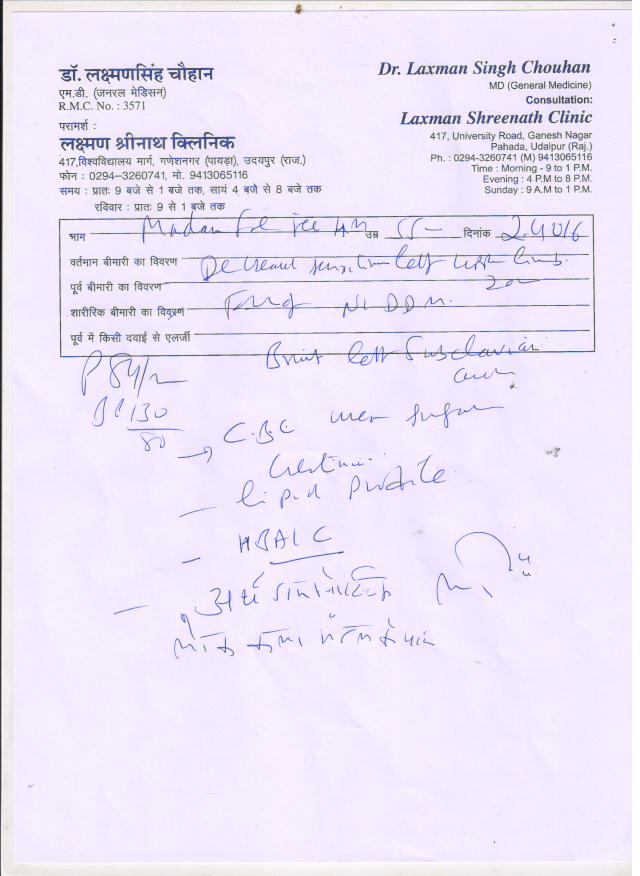 डॉ. लक्ष्मणसिंह चौहान
एम.डी. (जनरल मेडिसन)
R.M.C. No. : 3571
परामर्श :
लक्ष्मण श्रीनाथ क्लिनिक
417,विश्वविद्यालय मार्ग, गणेशनगर (पायड़ा), उदयपुर (राज.)
फोन : 0294–3260741, मो. 9413065116
समय : प्रातः 9 बजे से 1 बजे तक, सायं 4 बजे से 8 बजे तक
रविवार : प्रातः 9 से 1 बजे तक
Dr. Laxman Singh Chouhan
MD (General Medicine)
Consultation:
Laxman Shreenath Clinic
417, University Road, Ganesh Nagar
Pahada, Udaipur (Raj.)
Ph. : 0294-3260741 (M) 9413065116
Time : Morning - 9 to 1 P.M.
Evening : 4 P.M to 8 P.M.
Sunday : 9 A.M to 1 P.M.
नाम Madan उम्र 55 दिनांक
वर्तमान बीमारी का विवरण Decreased left upper limb
पूर्व बीमारी का विवरण
शारीरिक बीमारी का विवरण NIDDM.
पूर्व में किसी दवाई से एलर्जी
Bruit left Subclavian
P 84/m
BP 130/80
→ C.B.C urea sugar
Creatinine
– lipid profile
– HBA1C